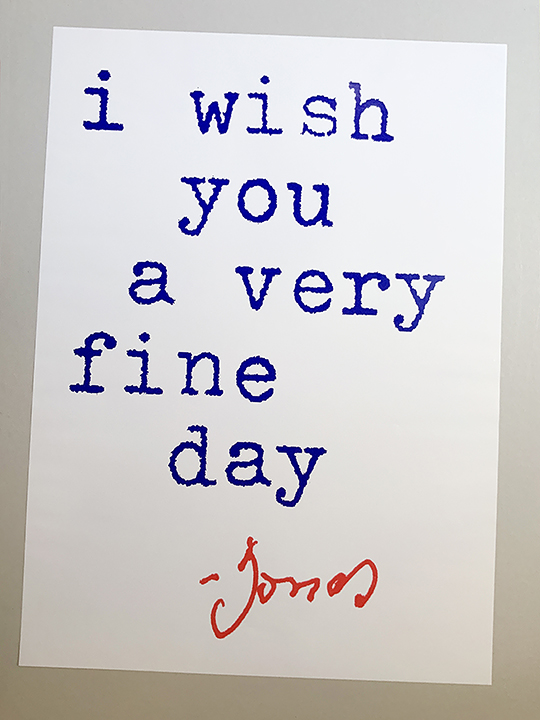 i wish
you
a very
fine
day
-Jonas